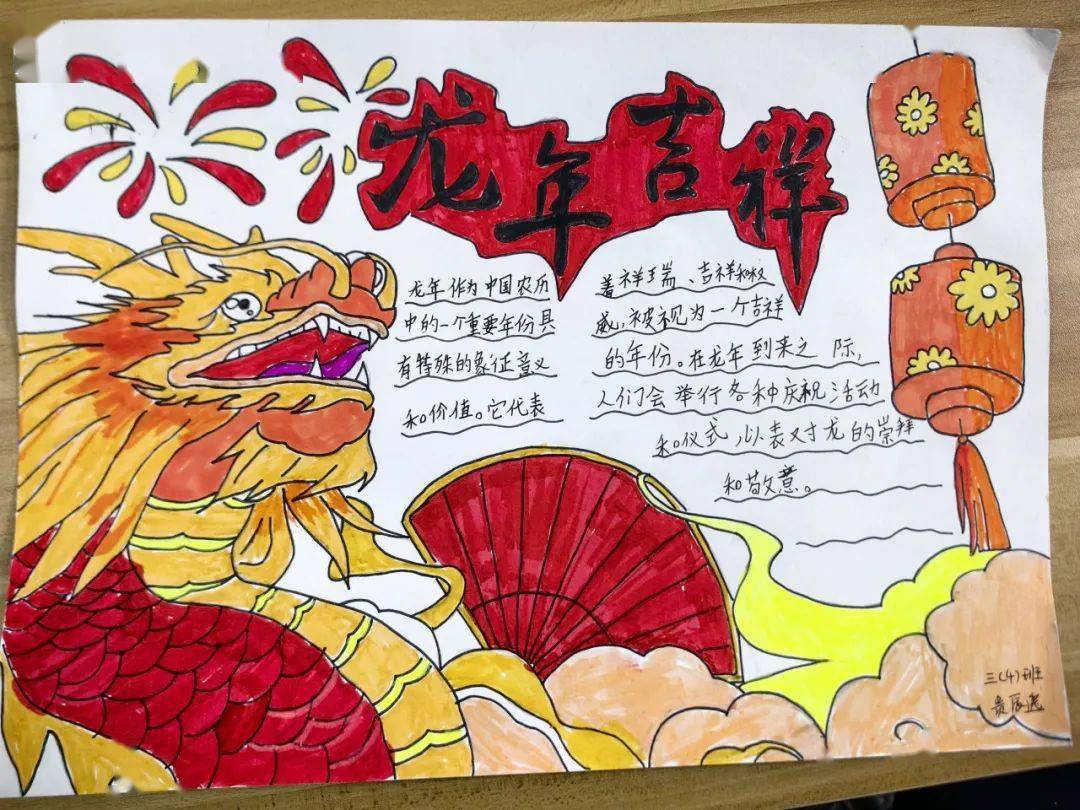 龙年吉祥
龙年作为中国农历
中的一个重要年份具
有特殊的象征意义
和价值。它代表
着祥瑞、吉祥和权
威,被视为一个吉祥
的年份。在龙年到来之际,
人们会举行各种庆祝活动
和仪式,以表对龙的崇拜
和敬意。
三(4)班